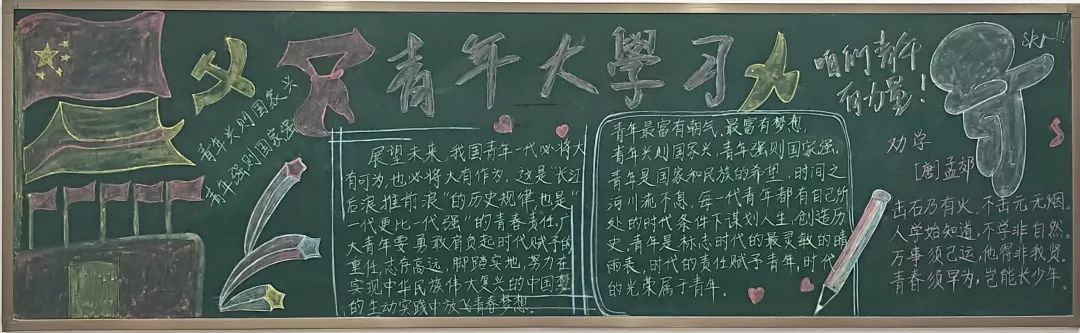 青年大學习
青年兴则国家兴
青年强则国家强
展望未来,我国青年一代必将大
有可为,也必将大有作为。这是"长江
后浪推前浪"的历史规律,也是"
一代更比一代强"的青春责任。广
大青年要勇敢肩负起时代赋予的
重任,志存高远,脚踏实地,努力在
实现中华民族伟大复兴的中国梦
的生动实践中放飞青春梦想。
青年最富有朝气,最富有梦想,
青年兴则国家兴,青年强则国家强。
青年是国家和民族的希望。时间之
河川流不息,每一代青年都有自己所
处的时代条件下谋划人生、创造历
史,青年是标志时代的最灵敏的晴
雨表,时代的责任赋予青年,时代
的光荣属于青年。
咱们青年
有力量!
skr!!!
劝学
[唐]孟郊
击石乃有火,不击元无烟。
人学始知道,不学非自然。
万事须己运,他得非我贤。
青春须早为,岂能长少年。